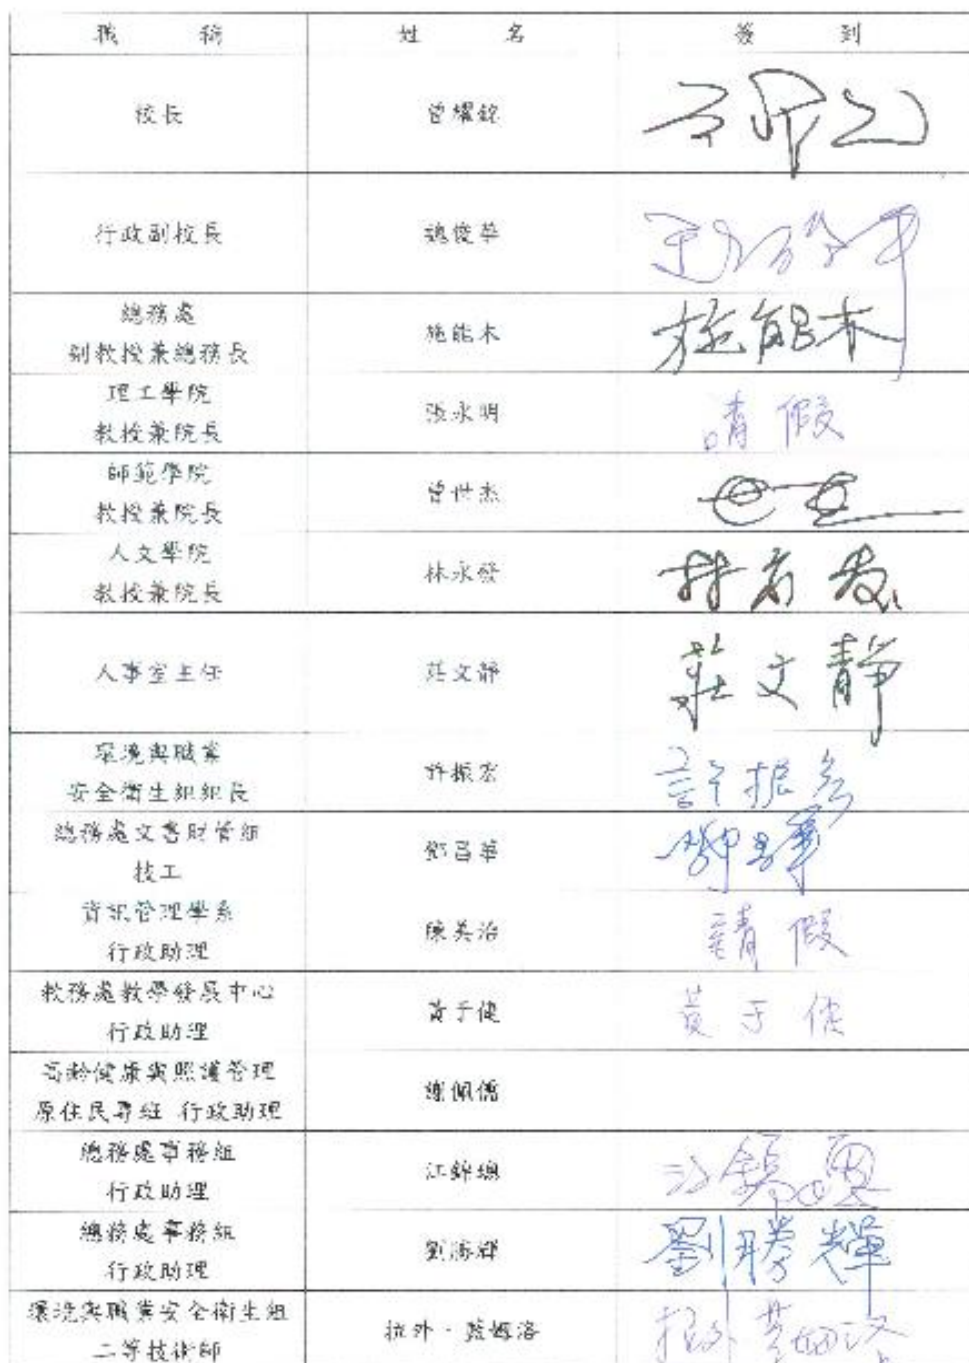 職 稱 姓 名 簽 到
校長 曾耀銘
行政副校長 魏俊華
總務處
副教授兼總務長 施能木 施能木
理工學院
教授兼院長 張永明 請假
師範學院
教授兼院長 曾世杰
人文學院
教授兼院長 林永發
人事室主任 莊文靜 莊文靜
環境與職業
安全衛生組組長 許振宏 許振宏
總務處文書財管組
技工 鄧昌華
資訊管理學系
行政助理 陳美治 請假
教務處教學發展中心
行政助理 黃于健 黃于健
高齡健康與照護管理
原住民專班 行政助理 謝佩儒
總務處事務組
行政助理 江錦聰
總務處事務組
行政助理 劉勝輝 劉勝輝
環境與職業安全衛生組
二等技術師 拉外·藍姆洛